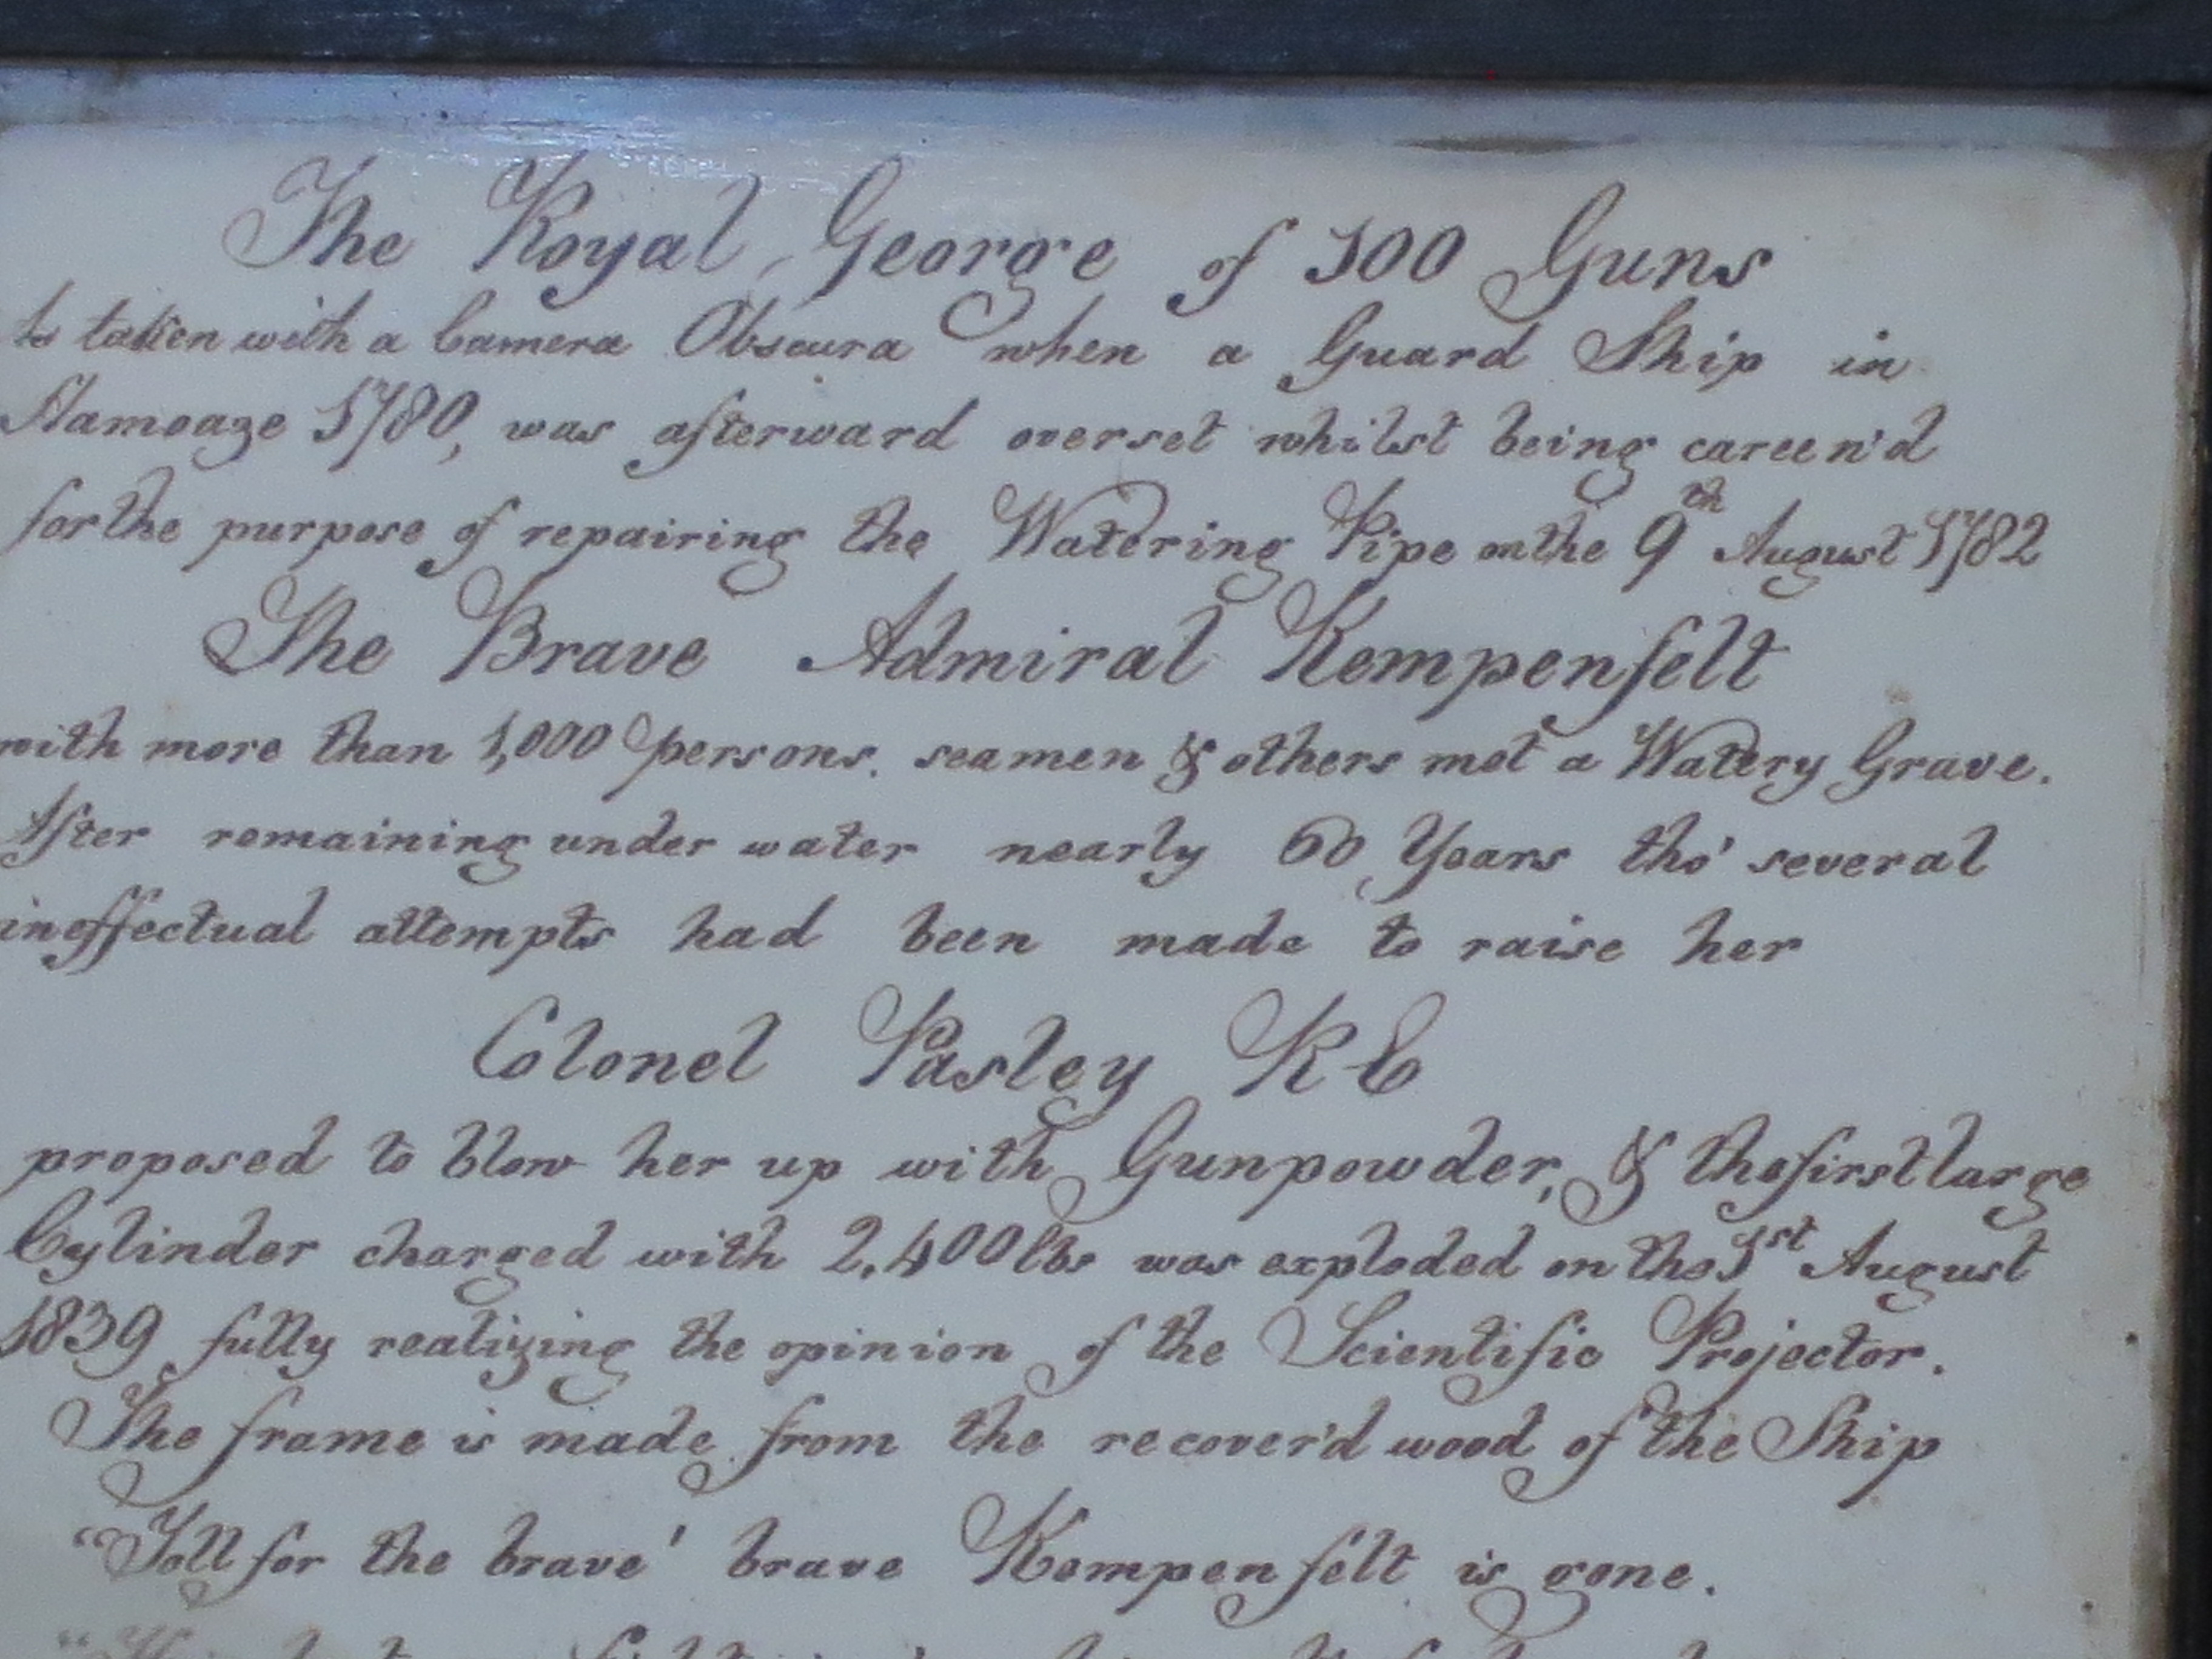 The Royal George of 100 Guns
taken with a Camera Obscura when a Guard Ship in
Hamoaze 1780, was afterward overset whilst being careen'd
for the purpose of repairing the Watering Pipe on the 9th August 1782
The Brave Admiral Kempenfelt
with more than 1,000 persons. seamen & others met a Watery Grave.
After remaining under water nearly 60 Years tho' several
ineffectual attempts had been made to raise her
Colonel Pasley RE
proposed to blow her up with Gunpowder, & the first large
Cylinder charged with 2,400 lbs was exploded on the 1st August
1839 fully realizing the opinion of the Scientific Projector.
The frame is made from the recover'd wood of the Ship
"Toll for the brave' brave Kempenfelt is gone.